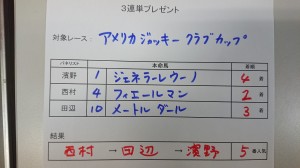 3連単プレゼント
対象レース： アメリカジョッキークラブカップ
パネリスト 本命馬 着順
濱野 1 ジェネラーレウーノ 4 着
西村 4 フィエールマン 2 着
田辺 10 メートルダール 3 着
結果
西村 → 田辺 → 濱野 5 番人気